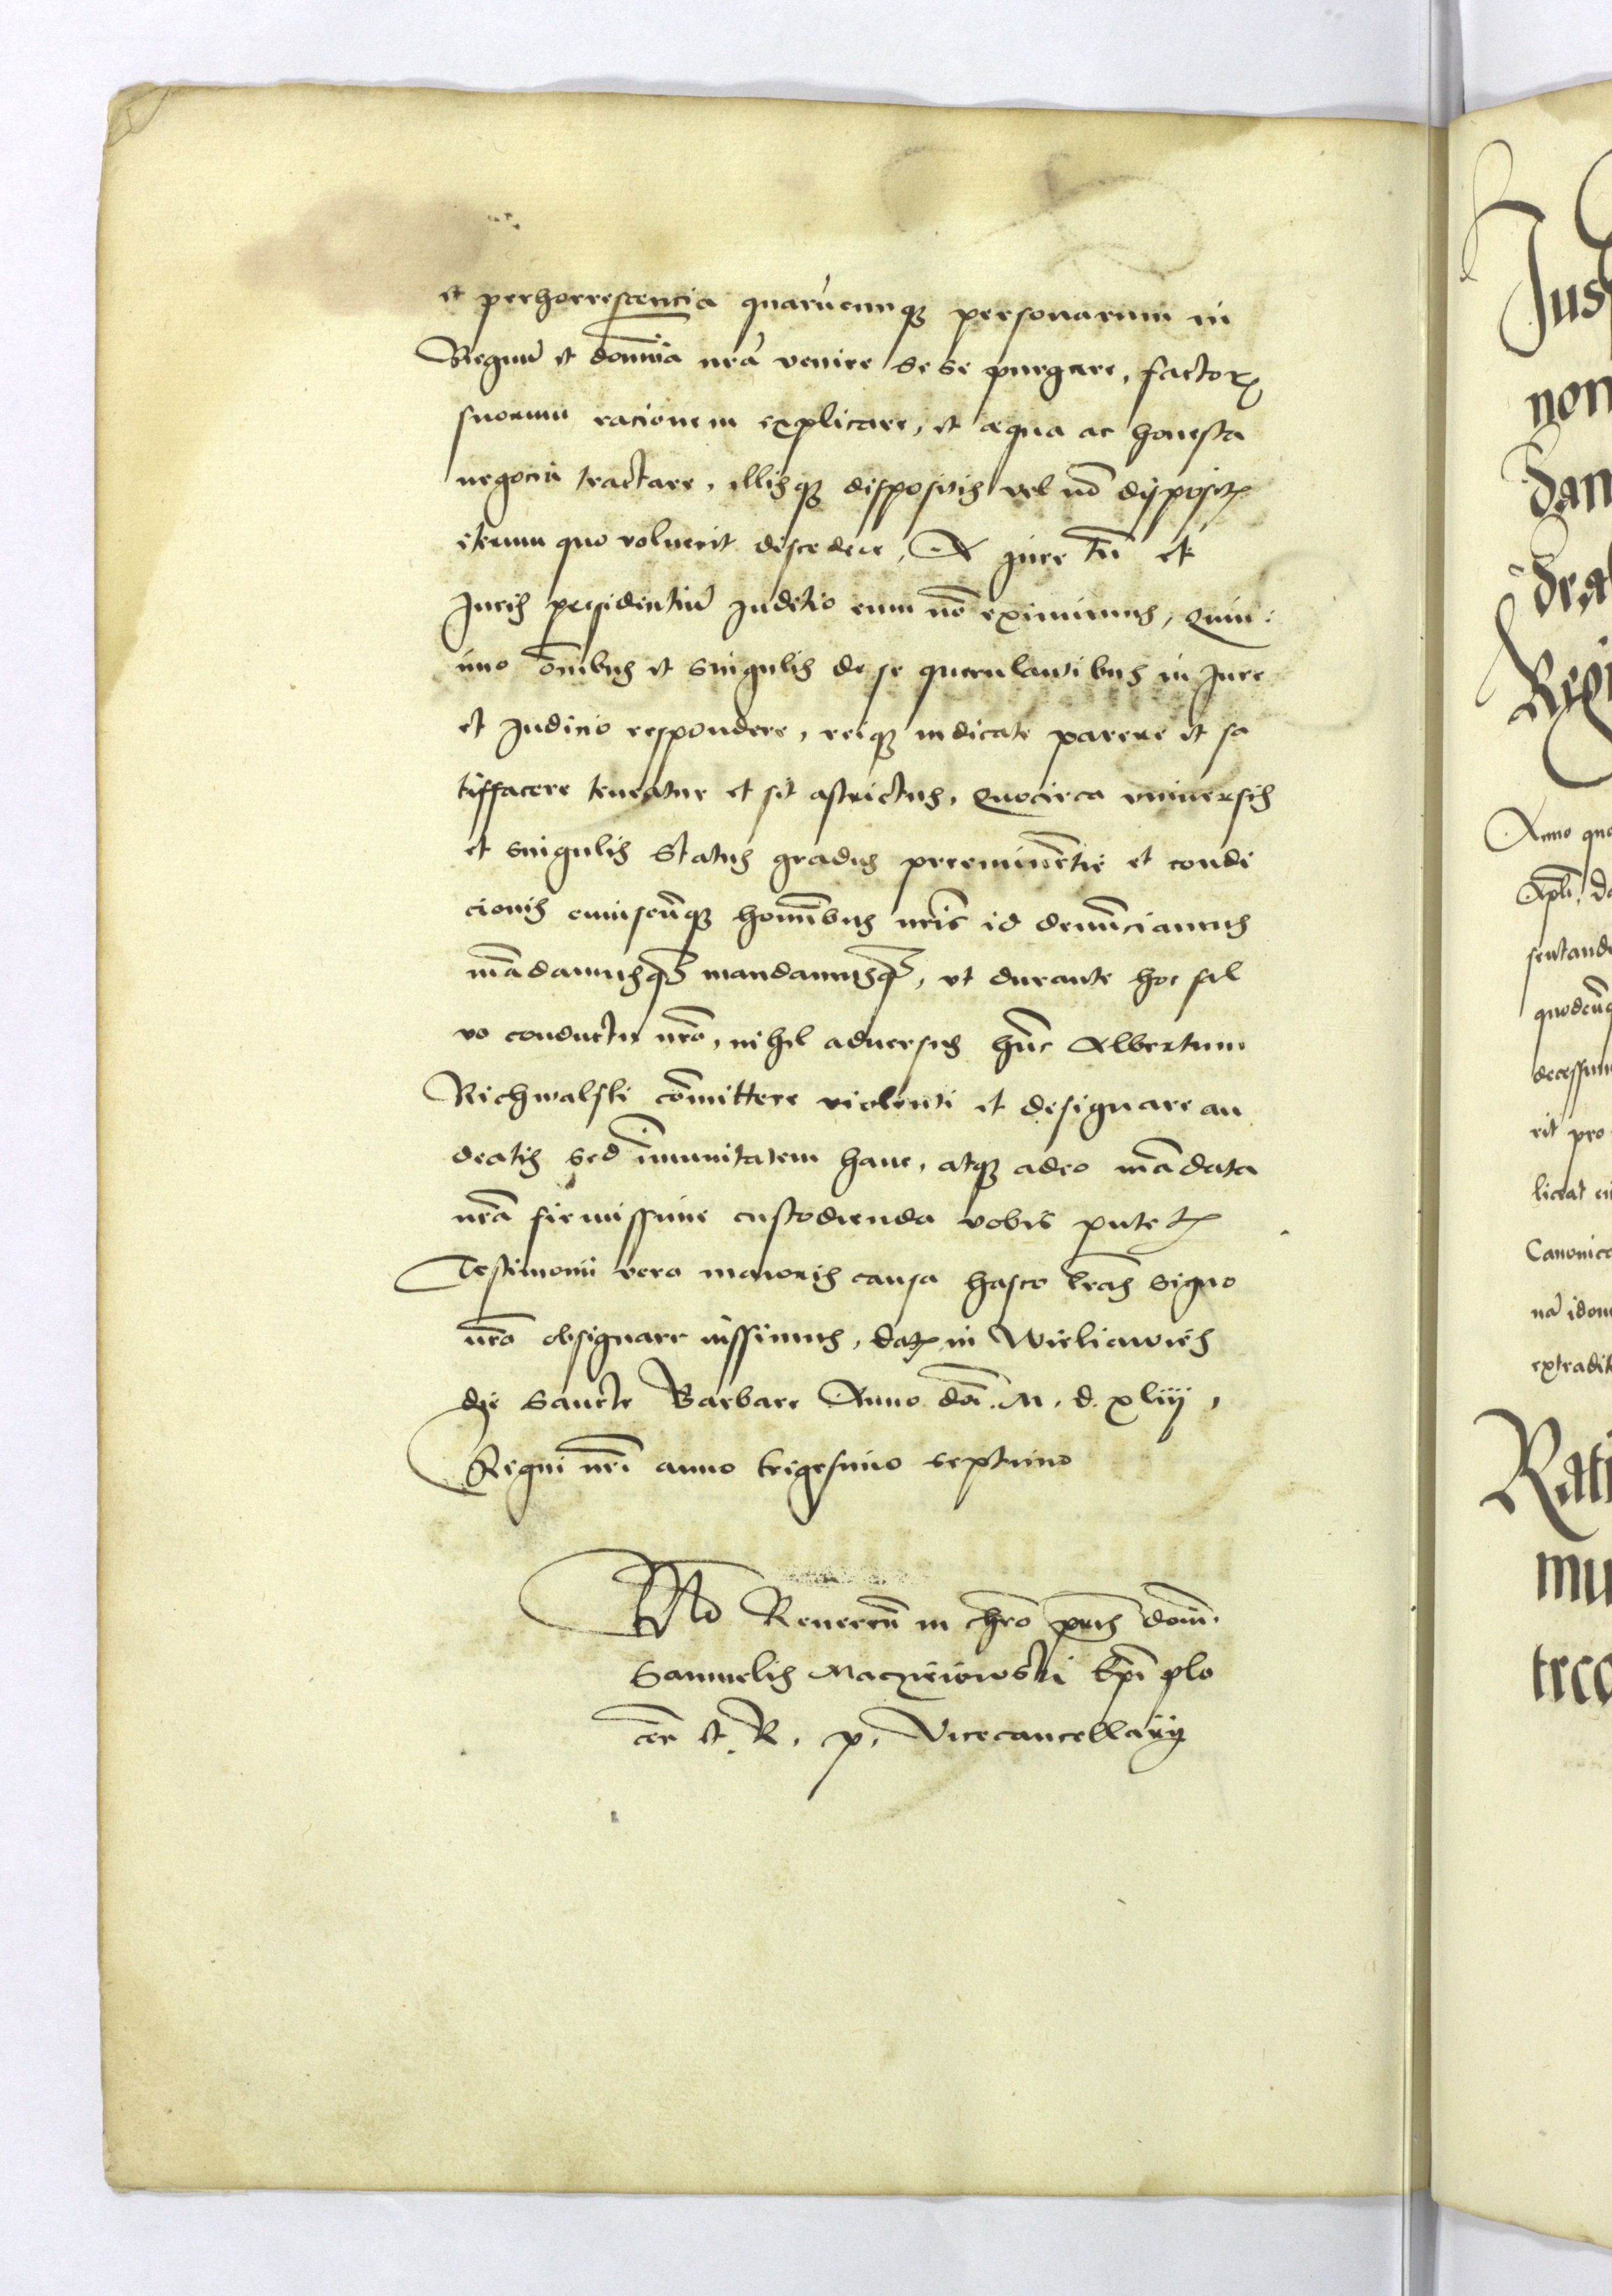 et perhorrescencia quarūcunq₃ personarum in
Regnū et domīa nrā venire se se purgare, factoꝝ
suorum racionem explicare, et æqua ac honesta
negocia tractare, illisq₃ dispositis vel nō dispositꝭ
iterum quo voluerit discedere, A jure tn̄ et
Juris presidentiū Juditio eum nō eximimus, Quin
imo om̄ibus et singulis de se querulantibus in Jure
et Judicio respondere, reiq₃ iudicate parere et sa
tisfacere teneatur et sit astrictus, Quocirca vniuersis
et singulis status gradus preeminētie et condi
cionis cuiuscūq₃ homībus nrīs id denūciamus
mādamusq₃ mandamusq₃, vt durante hoc sal
vo conductu nrō, nihil aduersus hūc Albertum
Richwalski cōmittere violenti et designare au
deatis sed imunitatem hanc, atq₃ adeo mādata
nrā firmissime custodienda vobis putetꝭ
Testimonii vero maioris causa hasce lrās signo
nrō obsignare iussimus, datꝭ in Wieliawies
die Sancte Barbare Anno dnī. M. d. xliij,
Regni nrī anno trigesimo septimo
Reuerēn̄ in chrō prīs domī
Samuelis Maczieiowski Epī plo
cen̄ et R. p. Vicecancellarij
Jus
non
dan
Anno qua
Apli, da
sentand
quodcūq
decessum
rit pro
liceat ei
Canonica
nā idon
extradit
Rati
mu